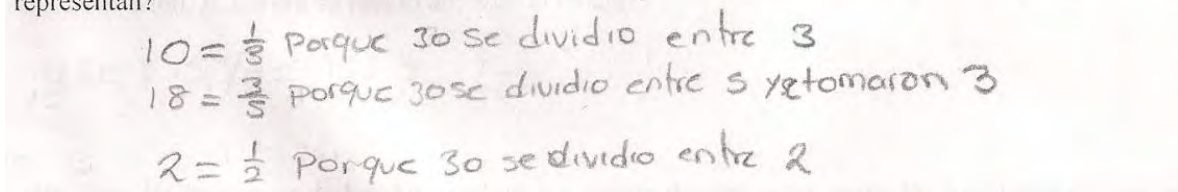 representan?
10 = 1/3 Porque 30 se dividio entre 3
18 = 3/5 porque 30 se dividio entre 5 y se tomaron 3
2 = 1/2 Porque 30 se dividio entre 2